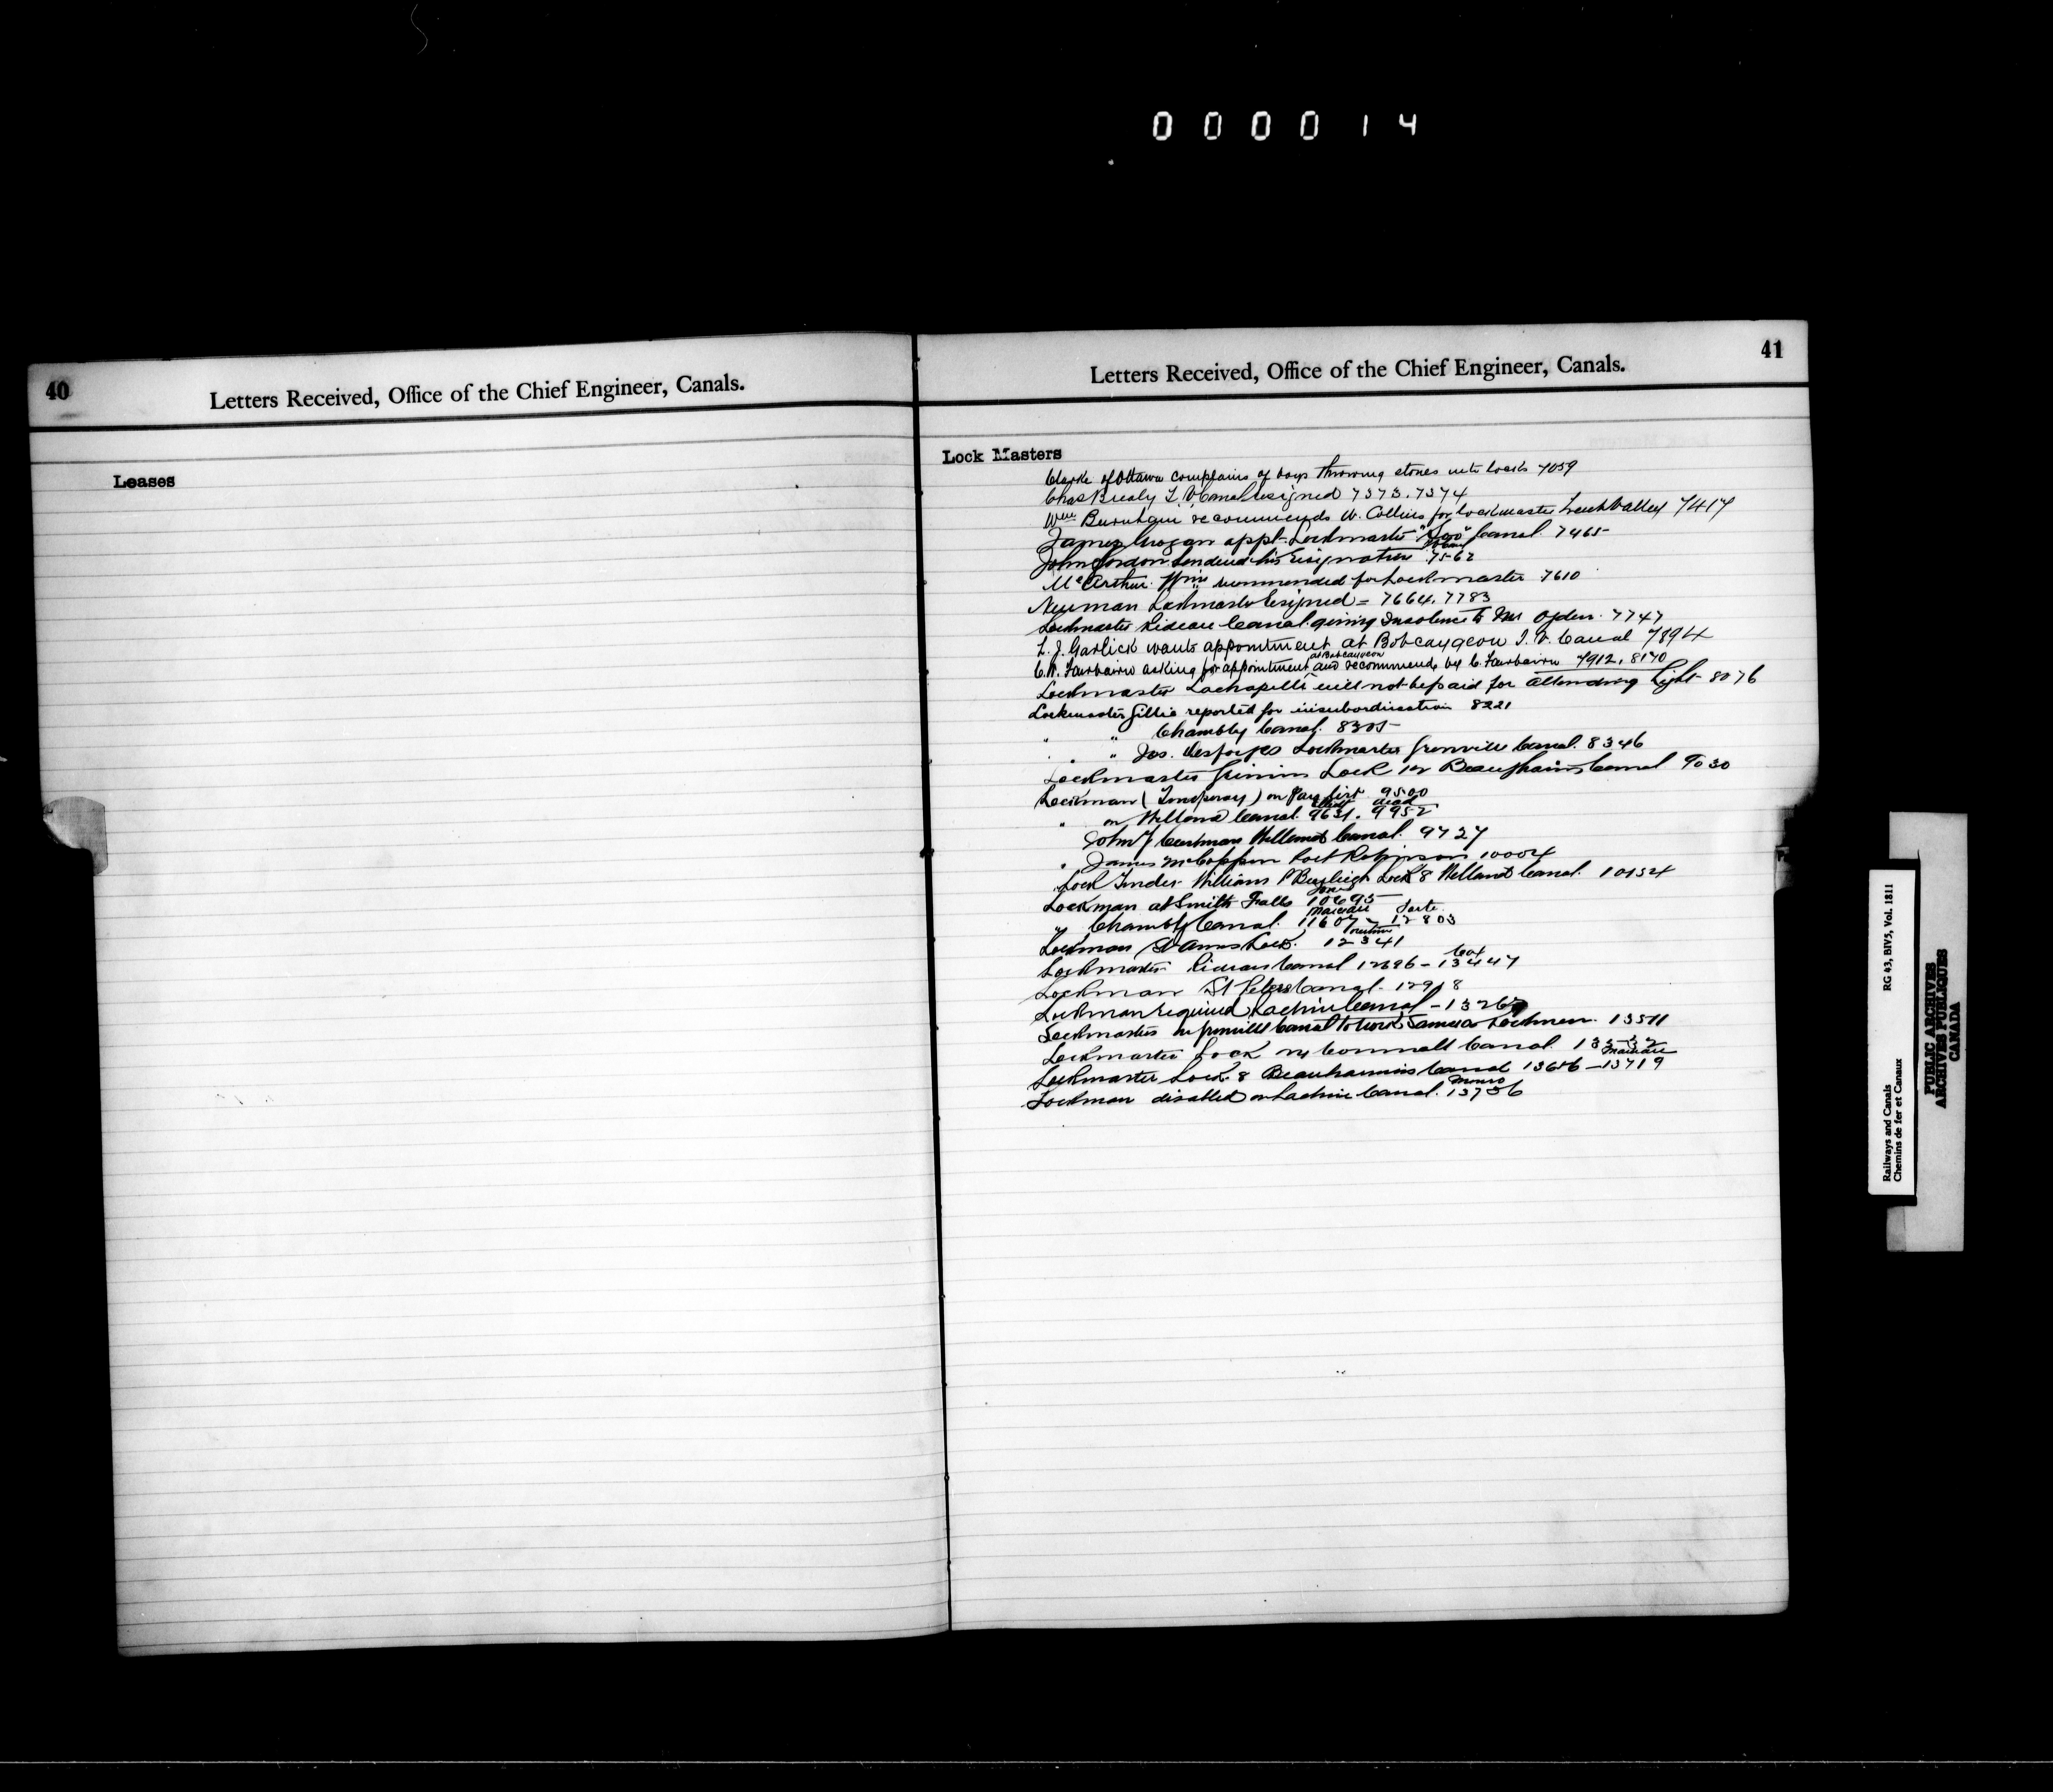 000014
40
Letters Received, Office of the Chief Engineer, Canals.
Leases
41
Letters Received, Office of the Chief Engineer, Canals.
Lock Masters
Clarke of Ottawa complains of boys throwing stones into locks 7059
Chas Brealy T. V. Canal resigned 7373. 7374
Wm Burnham recommends W. Collins for lockmaster Trent Valley 7417
James Grogan appt. Lockmaster "Soo" Canal. 7465
John Gordon tendered his resignation 7562
McArthur Wm recommended for Lockmaster 7610
Newman Lockmaster resigned = 7664. 7783
Lockmaster Rideau Canal giving Insolence to Mr Ogden. 7747
L. J. Garlick wants appointment at Bobcaygeon T. V. Canal 7894
C. W. Fairbairn asking for appointment at Bobcaygeon and recommends by C. Fairbairn 7912. 8170
Lockmaster Lachapelle will not be paid for attending light 8076
Lockmaster Gillie reported for insubordination 8221
" " Chambly Canal. 8305
" " Jos. Desforges Lockmaster Grenville Canal. 8346
Lockmaster Lock 12 Beauharnois Canal 9030
Lockman (Temporary) on Pay list 9500
" on Welland Canal. 9631. dead 9952
John Welland Canal. 9727
" James McCoppen Port Robinson 10004
Lock Tender William P Bayleigh Lock 8 Welland Canal. 10154
Lockman at Smith Falls 10695
" Chambly Canal. 11607 - 12803
Lockman St Annes Lock. 12341
Lockmaster Rideau Canal 12696 - 13447
Lockman St Peters Canal. 12918
Lockman required Lachine Canal - 13267
Lockmasters on Grenville Canal to work same as Lockmen. 13511
Lockmaster Lock Cornwall Canal.
Lockmaster Lock 8 Beauharnois Canal 13686 - 13719
Lockman disabled on Lachine Canal. Munro 13736
Railways and Canals RG 43, BIV5, Vol. 1811
Chemins de fer et Canaux
PUBLIC ARCHIVES
ARCHIVES PUBLIQUES
CANADA